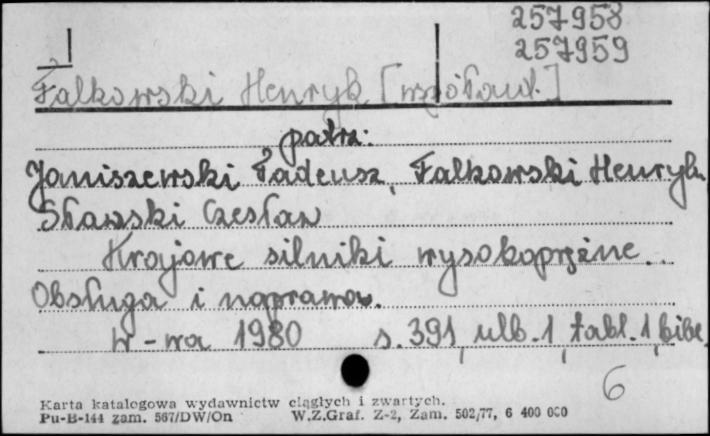 257958
257959
Falkowski Henryk [współaut.]
patrz:
Janiszewski Tadeusz, Falkowski Henryk
Sławski Czesław
Krajowe silniki wysokoprężne.
Obsługa i naprawa.
W-wa 1980 s. 391, nlb. 1, tabl. 1, bibl.
6
Karta katalogowa wydawnictw ciągłych i zwartych.
Pu-B-144 zam. 567/DW/On W.Z.Graf. Z-2, Zam. 502/77, 6 400 000